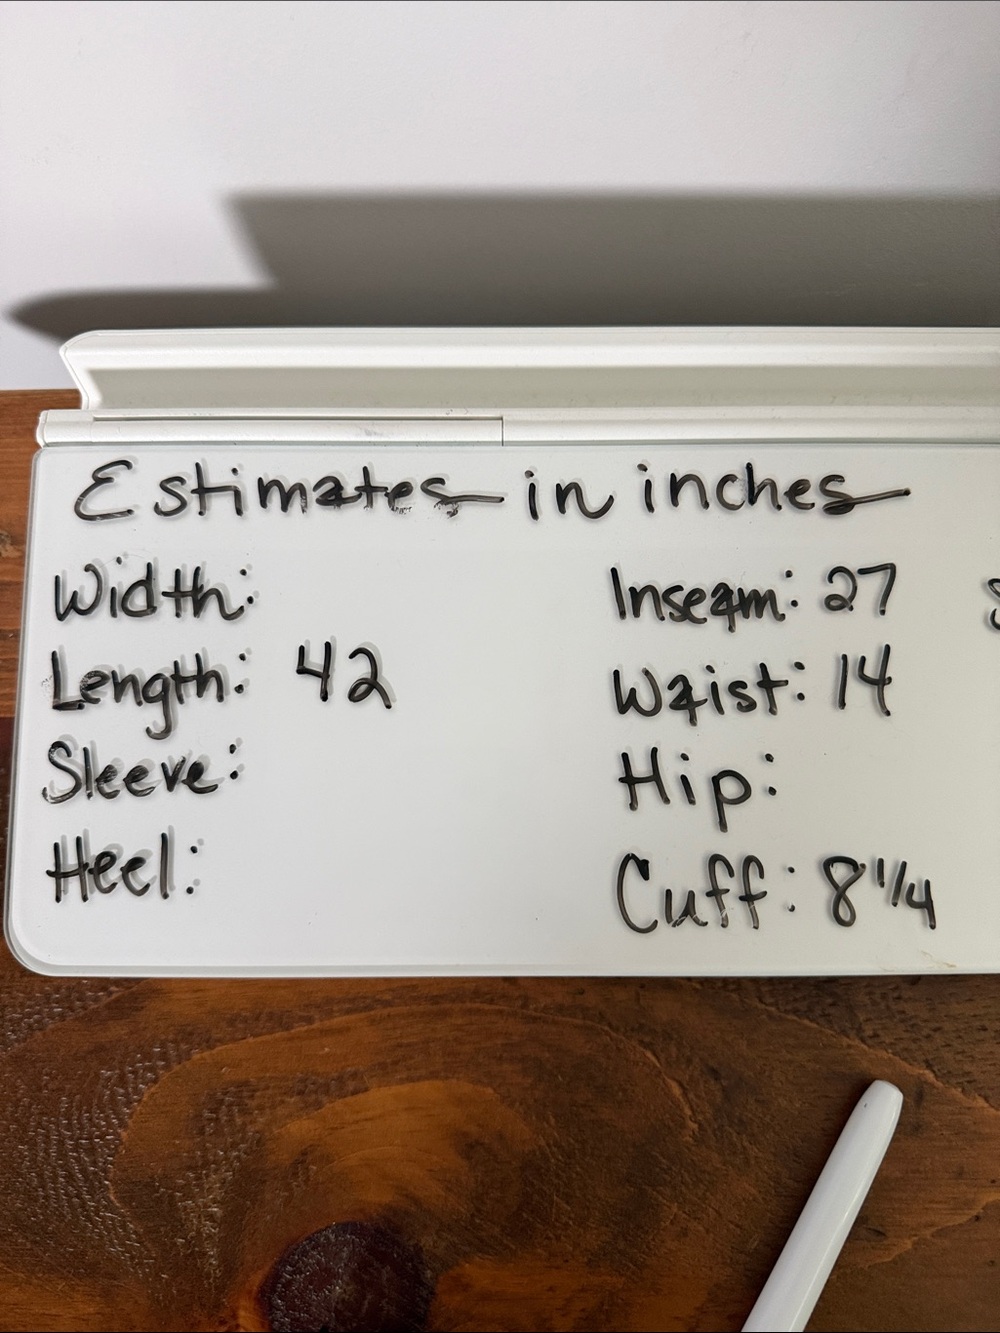 Estimates in inches
Width:
Length: 42
Sleeve:
Heel:
Inseam: 27
Waist: 14
Hip:
Cuff: 8 1/4